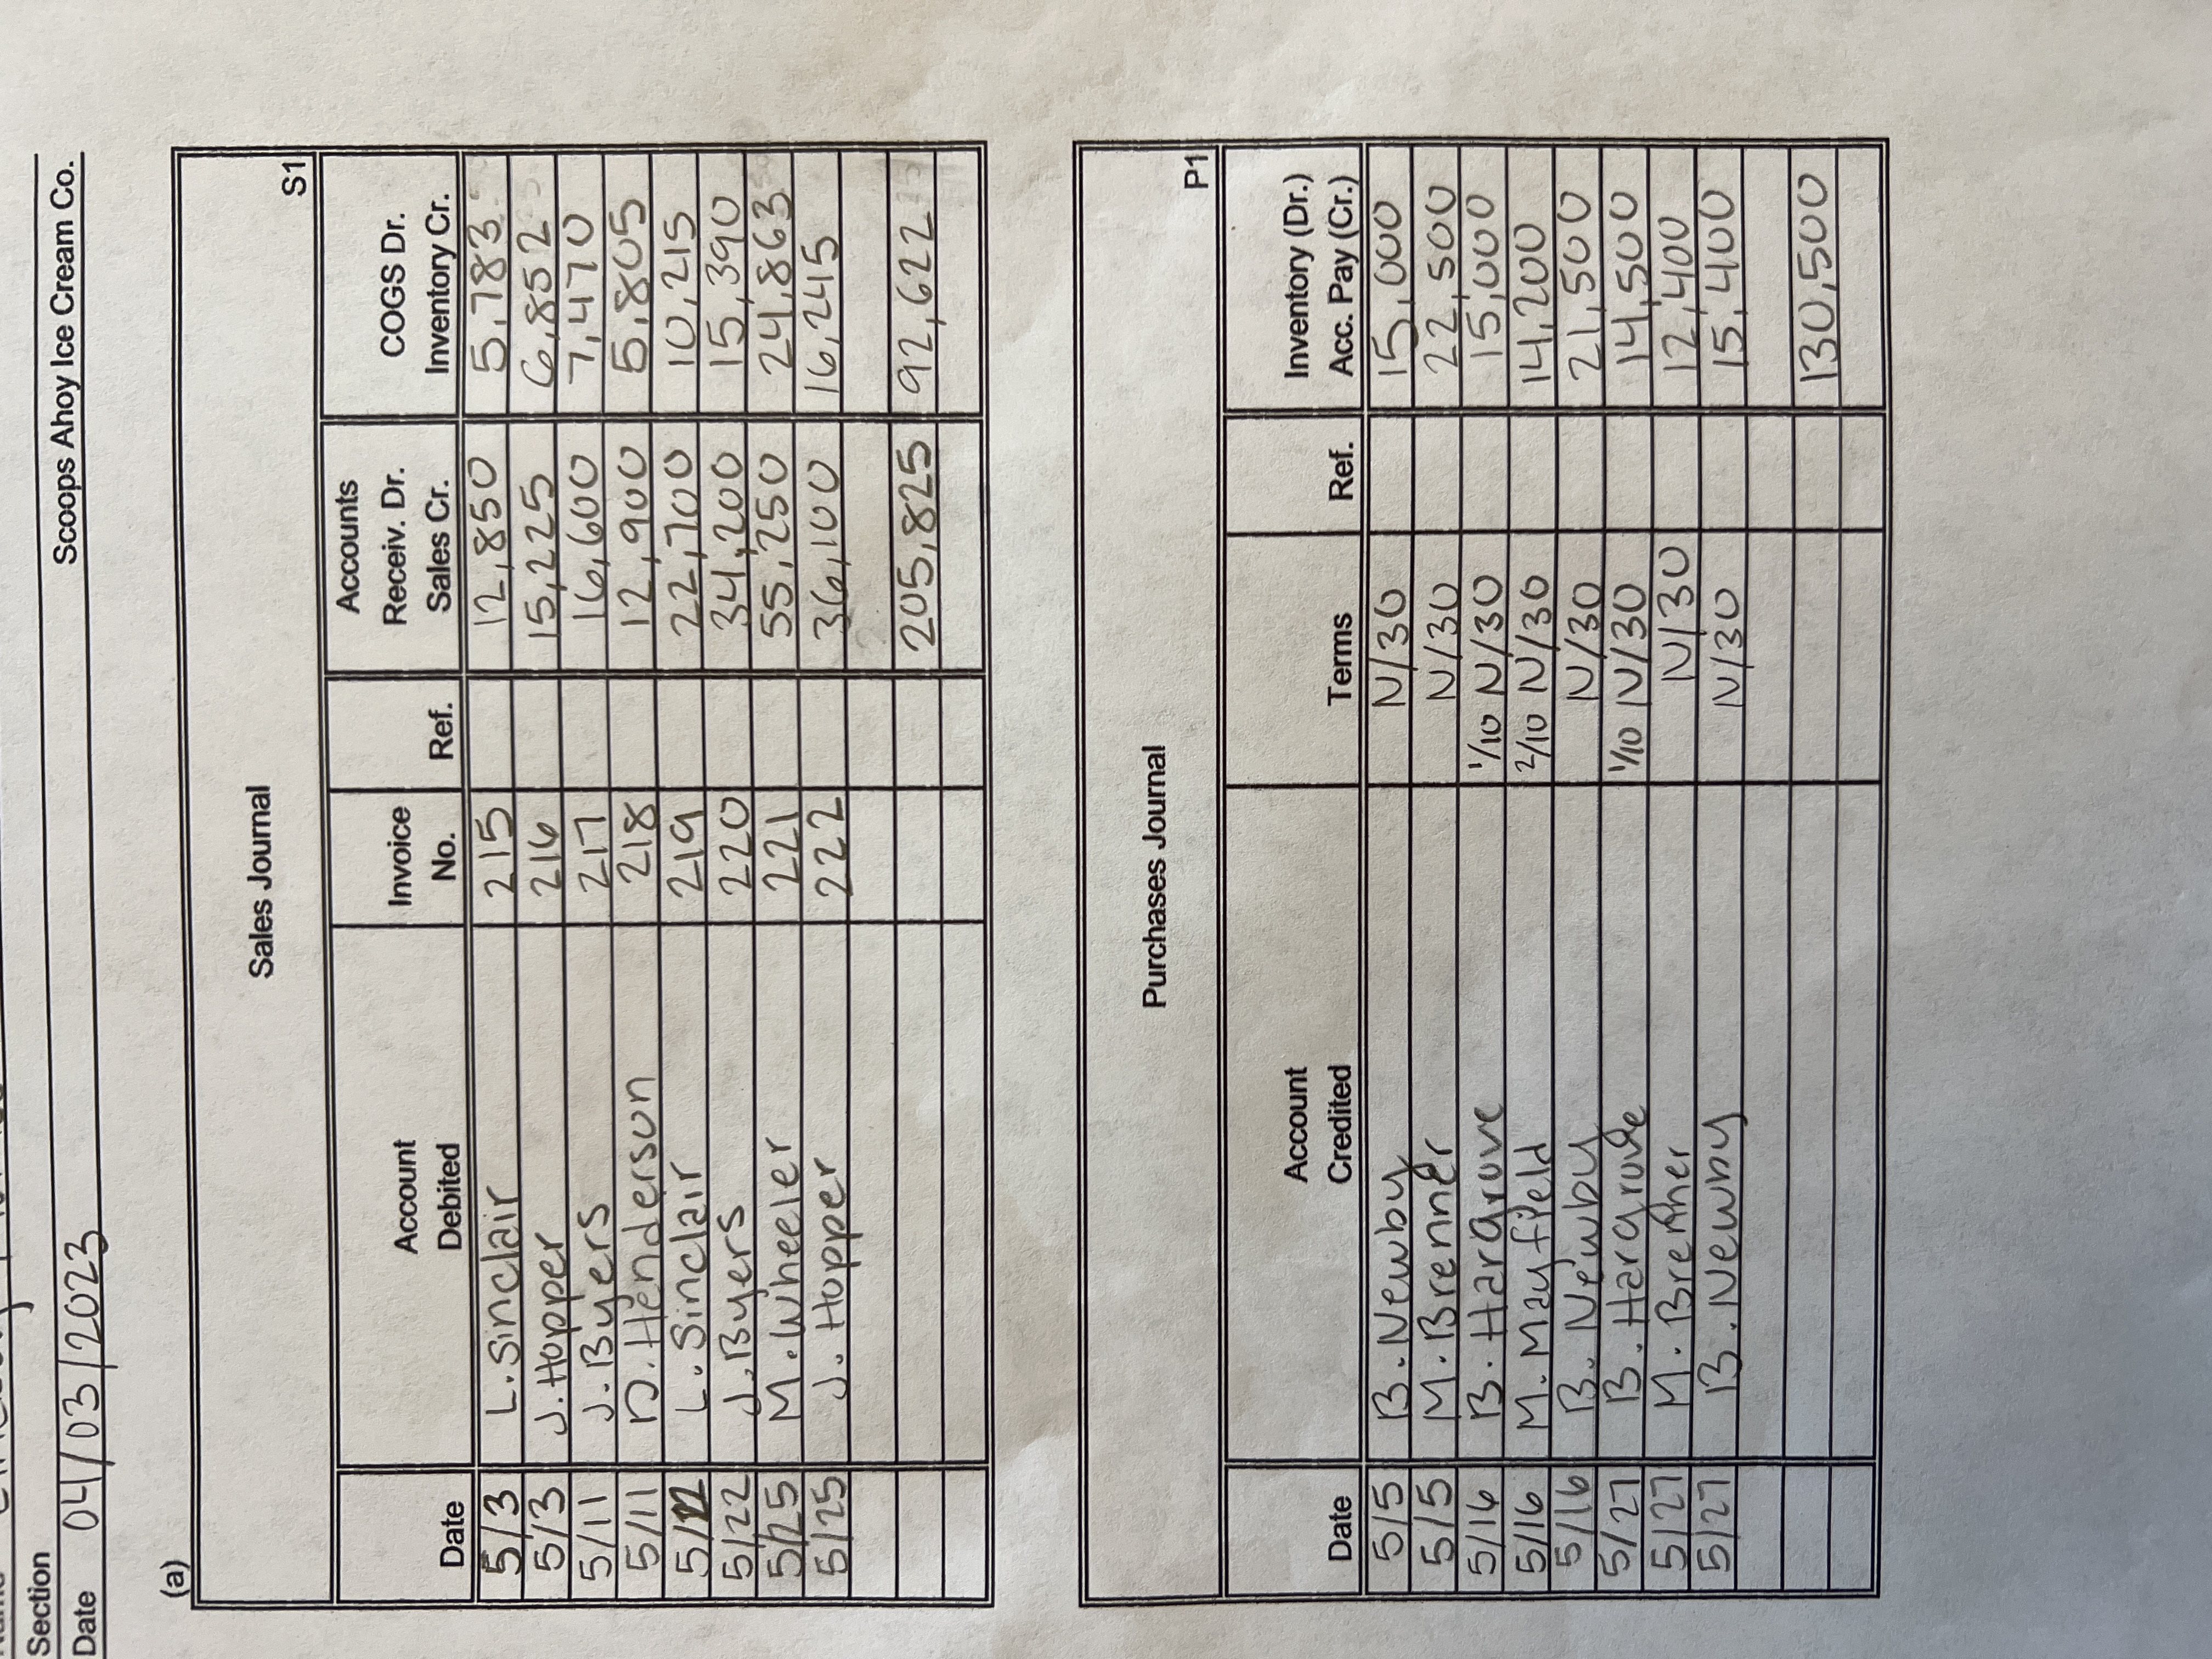 Section
Scoops Ahoy Ice Cream Co.
Date 04/03/2023
(a)
Sales Journal
S1
Date Account Debited Invoice No. Ref. Accounts Receiv. Dr. Sales Cr. COGS Dr. Inventory Cr.
5/3 L. Sinclair 215 12,850 5,783
5/3 J. Hopper 216 15,225 6,852
5/11 J. Byers 217 16,600 7,470
5/11 D. Henderson 218 12,900 5,805
5/22 L. Sinclair 219 22,700 10,215
5/22 J. Byers 220 34,200 15,390
5/25 M. Wheeler 221 55,250 24,863
5/25 J. Hopper 222 36,100 16,245
205,825 92,622
Purchases Journal
P1
Date Account Credited Terms Ref. Inventory (Dr.) Acc. Pay (Cr.)
5/5 B. Newby N/30 15,000
5/5 M. Brenner N/30 22,500
5/16 B. Hargrove 1/10 N/30 15,000
5/16 M. Mayfield 2/10 N/30 14,200
5/16 B. Newby N/30 21,500
5/27 B. Hargrove 1/10 N/30 14,500
5/27 M. Brenner N/30 12,400
5/27 B. Newby N/30 15,400
130,500